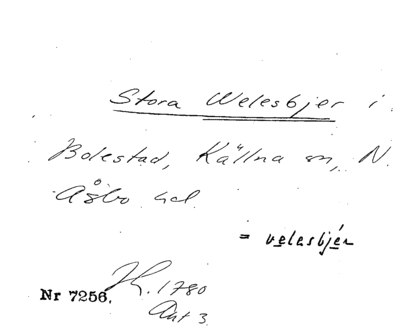 Stora Welesbjer i
Bolestad, Källna sn, N.
Åsbo hd.
= velesbjér
Nr 7256. 1780
Akt 3